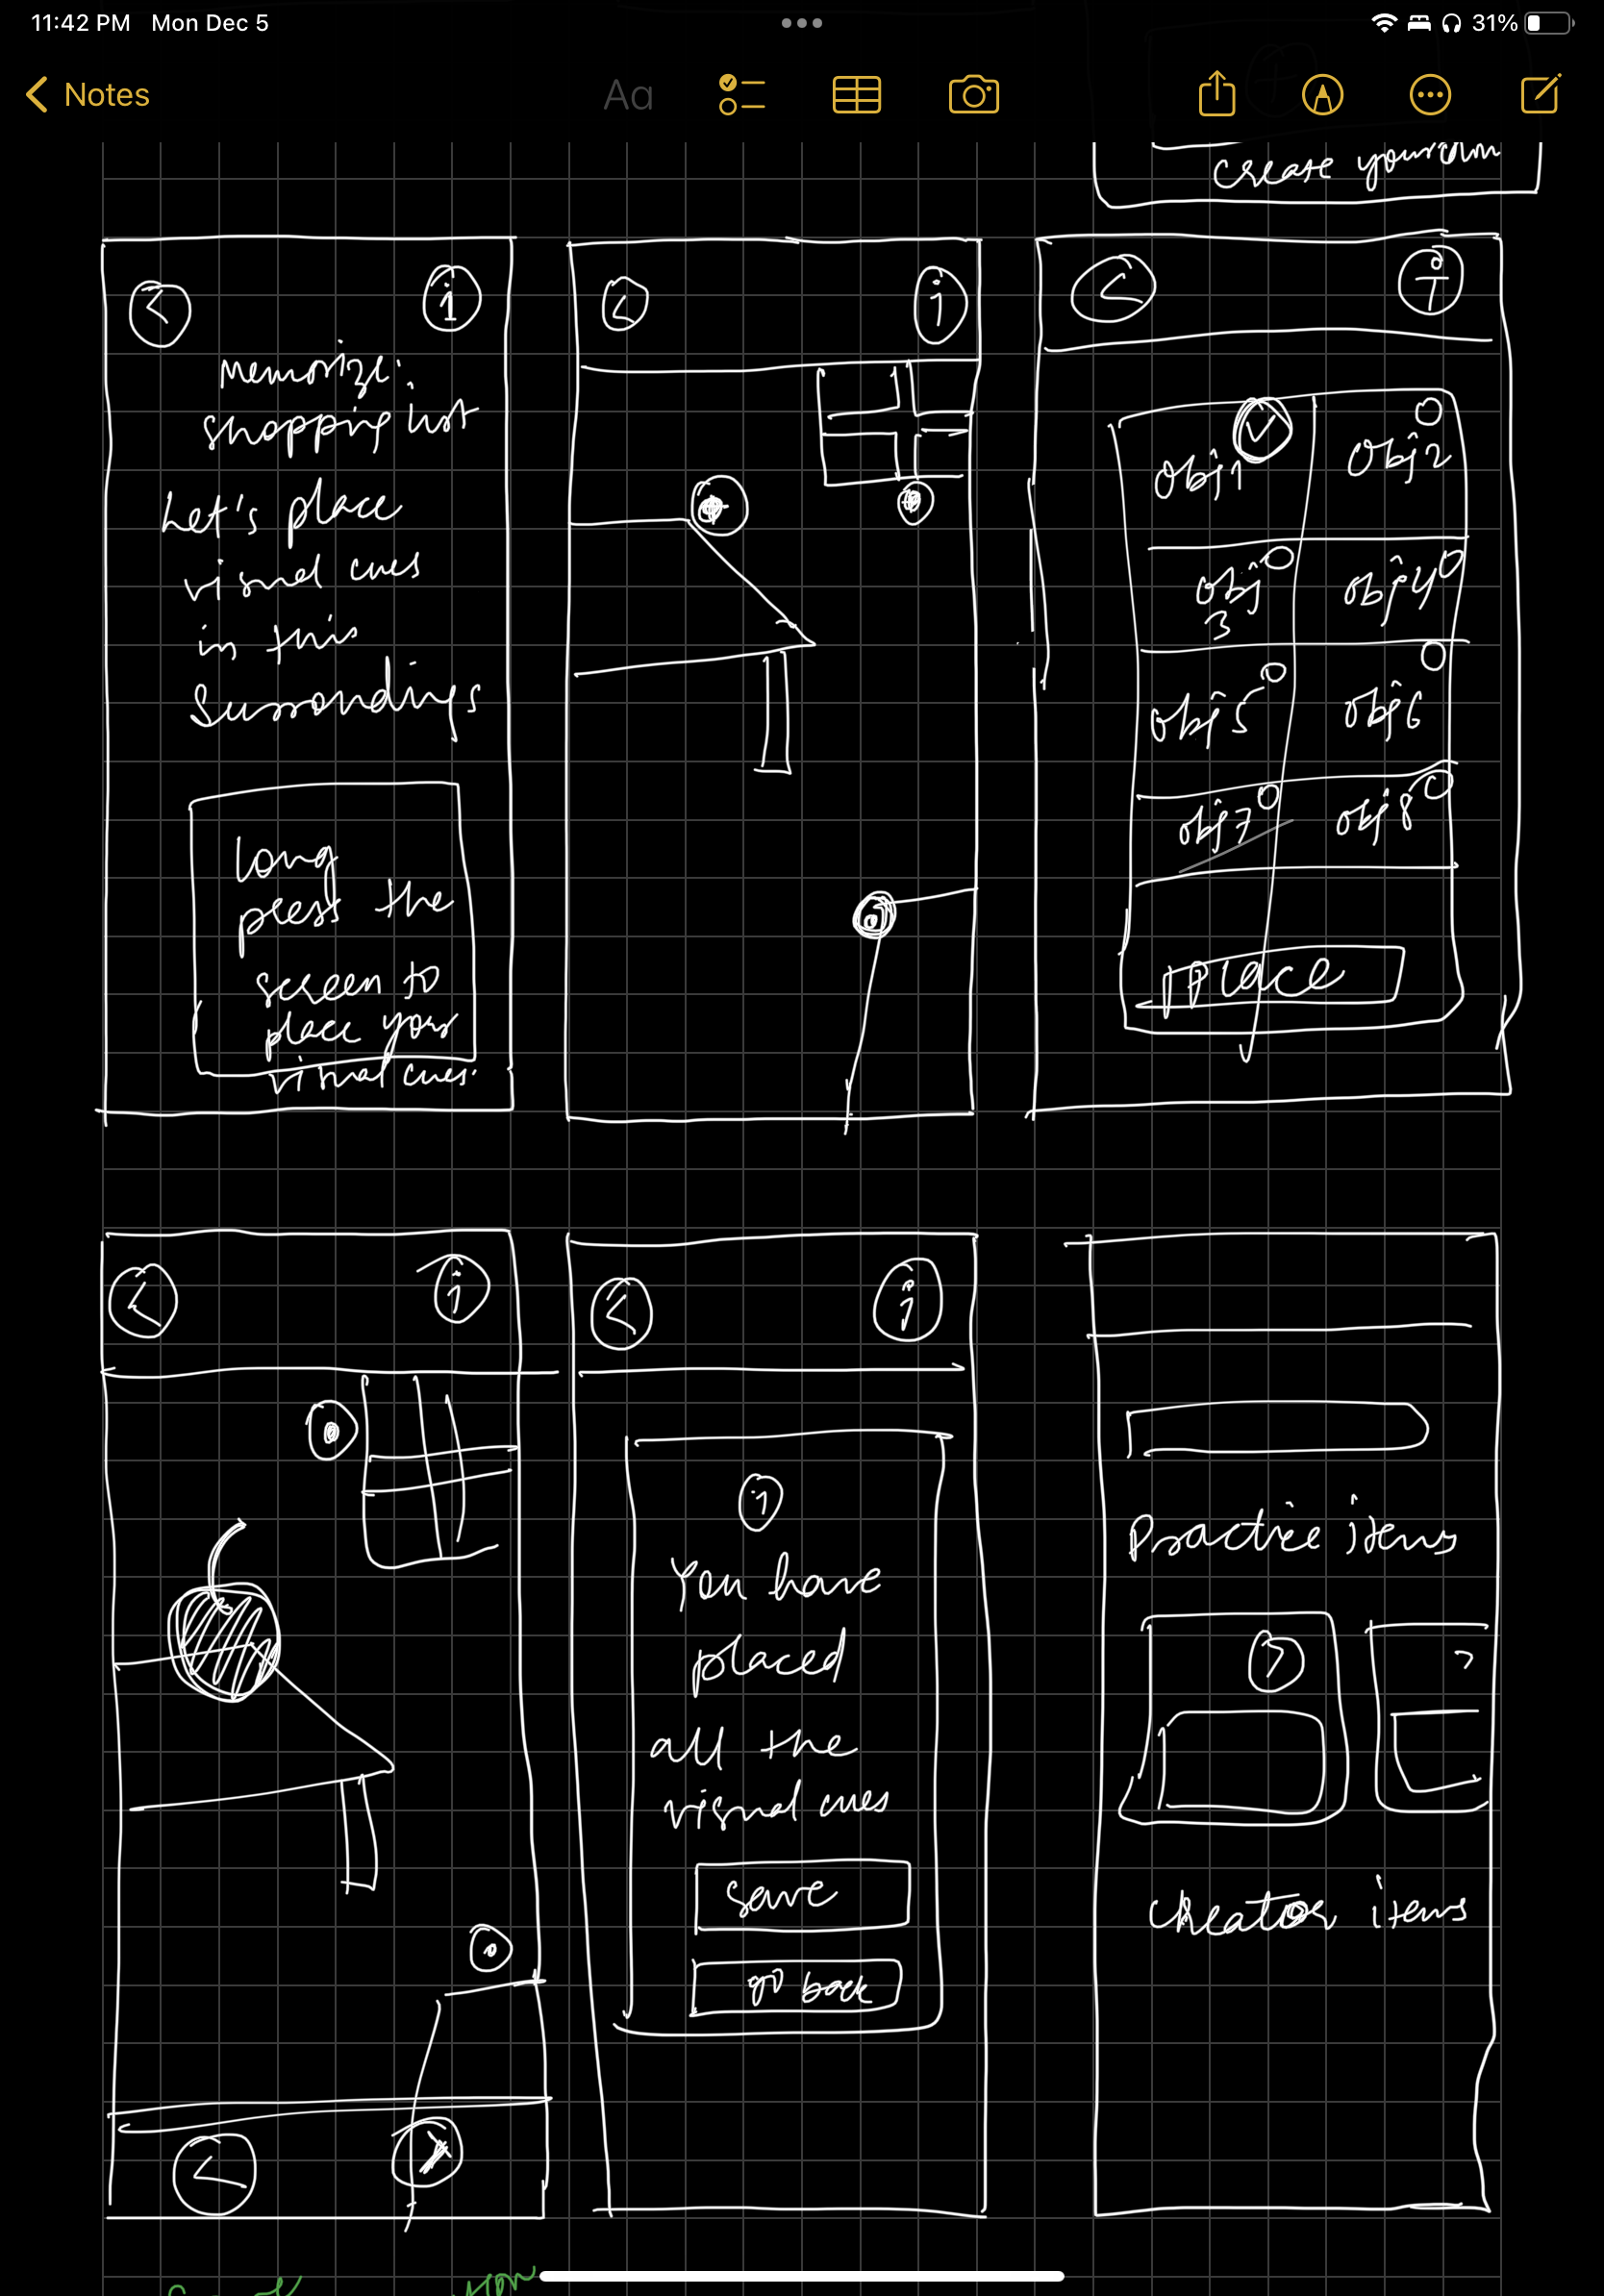 11:42 PM Mon Dec 5
31%
Notes
Aa
create your own
i
Memorize:
shopping list
Let's place
visual cues
in this
Surrondings
long
press the
screen to
place your
visual cues.
i
i
obj1
obj2
obj
3
obj4
obj5
obj6
obj7
obj8
Place
i
i
i
You have
placed
all the
visual cues
save
go back
Practice items
Creator items